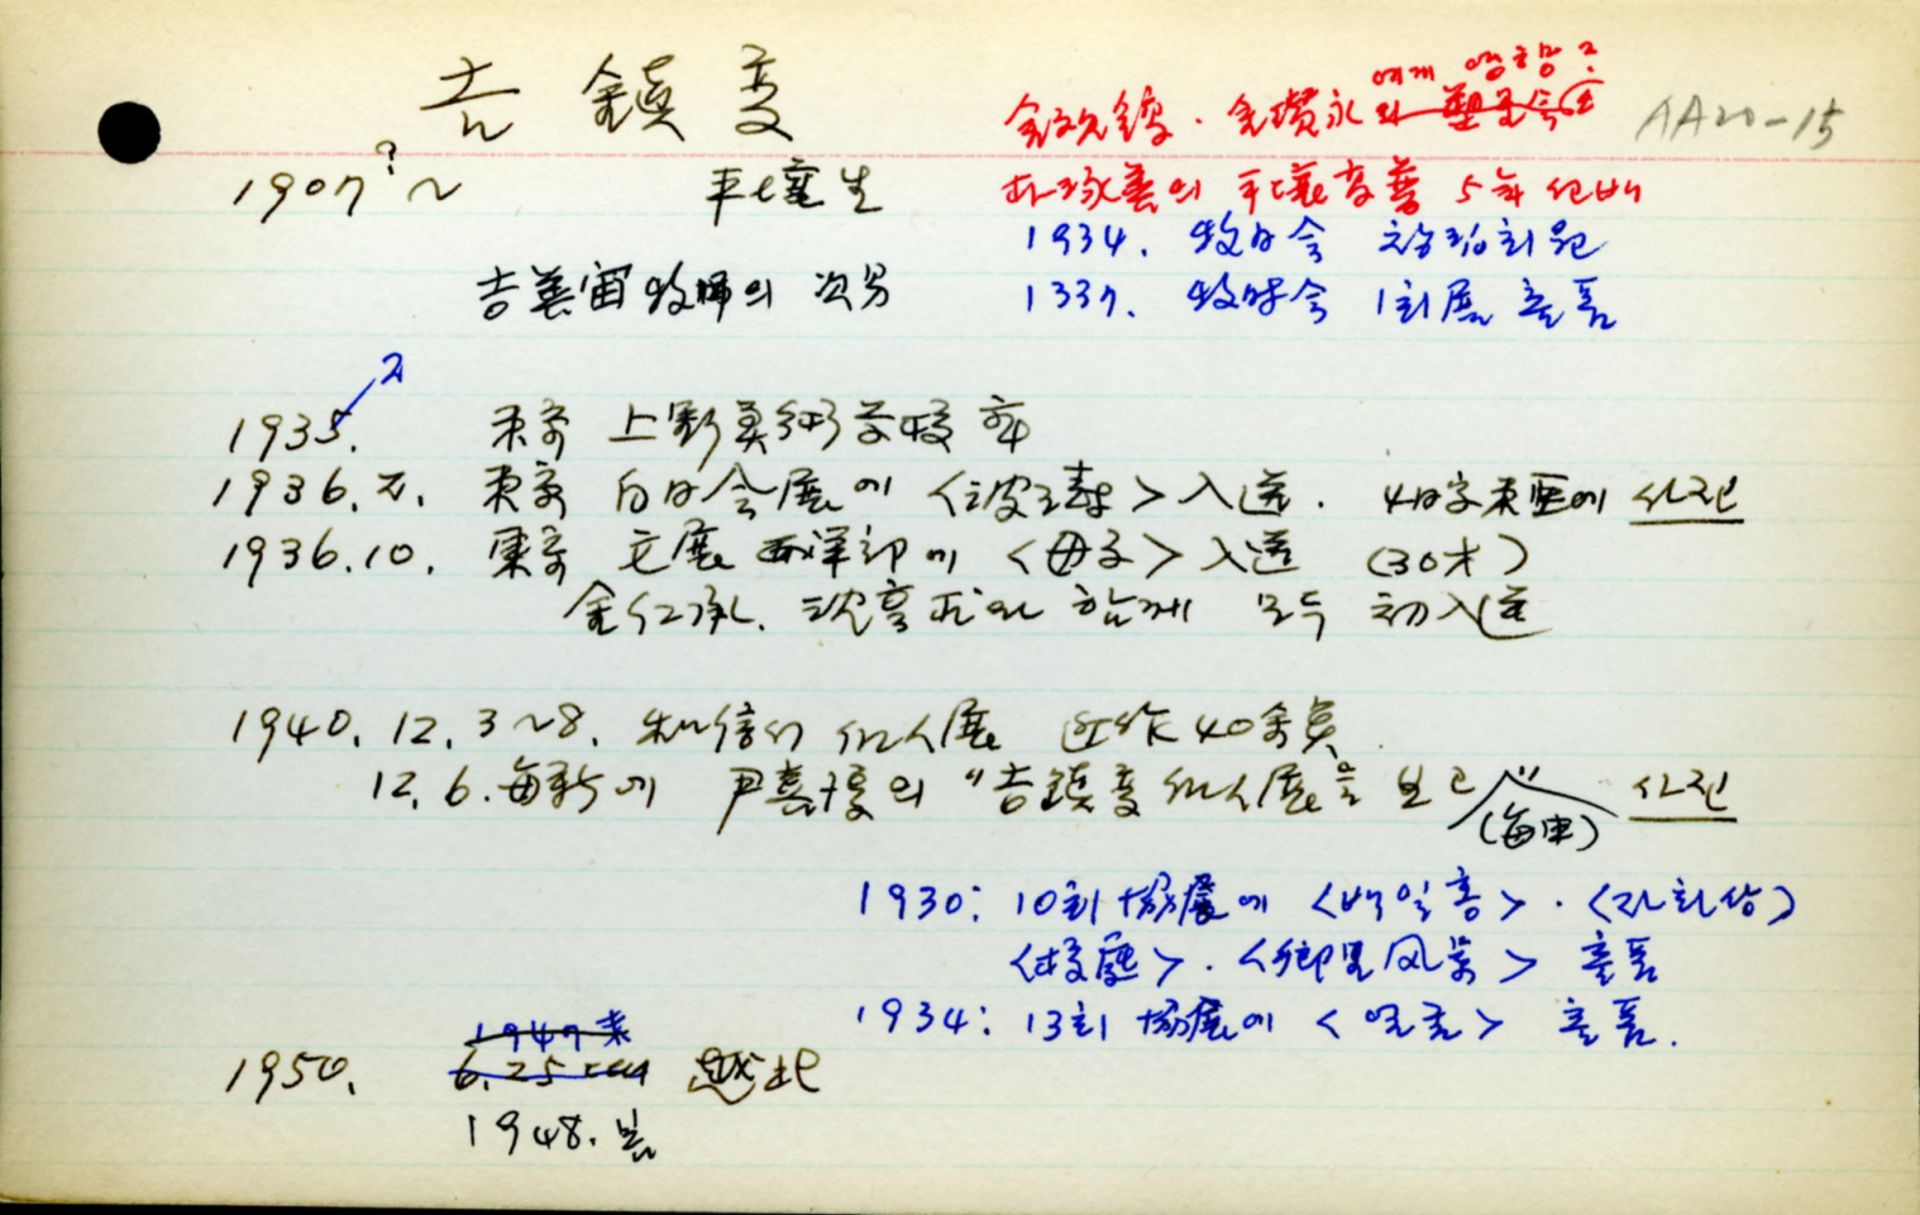 吉鎭燮
에게 영향?
金允鎬·金瓚永 와 塑星会
AA20-15
1907?~ 平壤生
朴琢善의 平壤高普 5年 선배
1934. 牧日会 창립회원
吉善宙 牧師의 次男
1937. 牧時会 1회展 출품
2
1935. 東京 上野美術学校 卒
1936.2. 東京 白日会展에 <波斯壺> 入選. 4日字 東亜에 사진
1936.10. 東京 文展 西洋部에 <母子> 入選 (30才)
金仁承, 沈亨求와 함께 모두 初入選
1940.12.3~8. 和信서 個人展 近作 40余点.
12.6. 每新에 尹喜淳의 "吉鎭燮 個人展을 보고" 사진
(每申)
1930: 10회 協展에 <백일홍>·<자화상>
<校庭>·<鄕里風景> 출품
1934: 13회 協展에 <열촌> 출품.
1947末
1950. 6.25 때 越北
1948. 봄